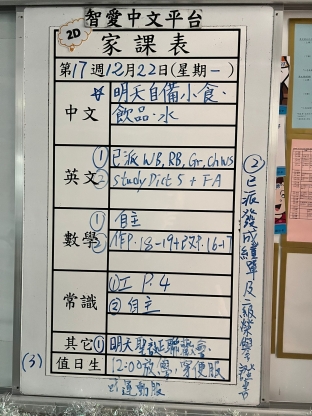 智愛中文平台
2D
家課表
第17週12月22日(星期一)
中文
☆明天自備小食、
飲品、水
英文
①已派WB, RB, Gr, Ch WS
②study Dict 5 + FA
數學
①自主
②作P.18-19+
P.16-17
常識
①工 P.4
②自主
其它
①明天聖誕聯歡會、
值日生
12:00放學,穿便服
或運動服
(2)已派發成績單及
(3)